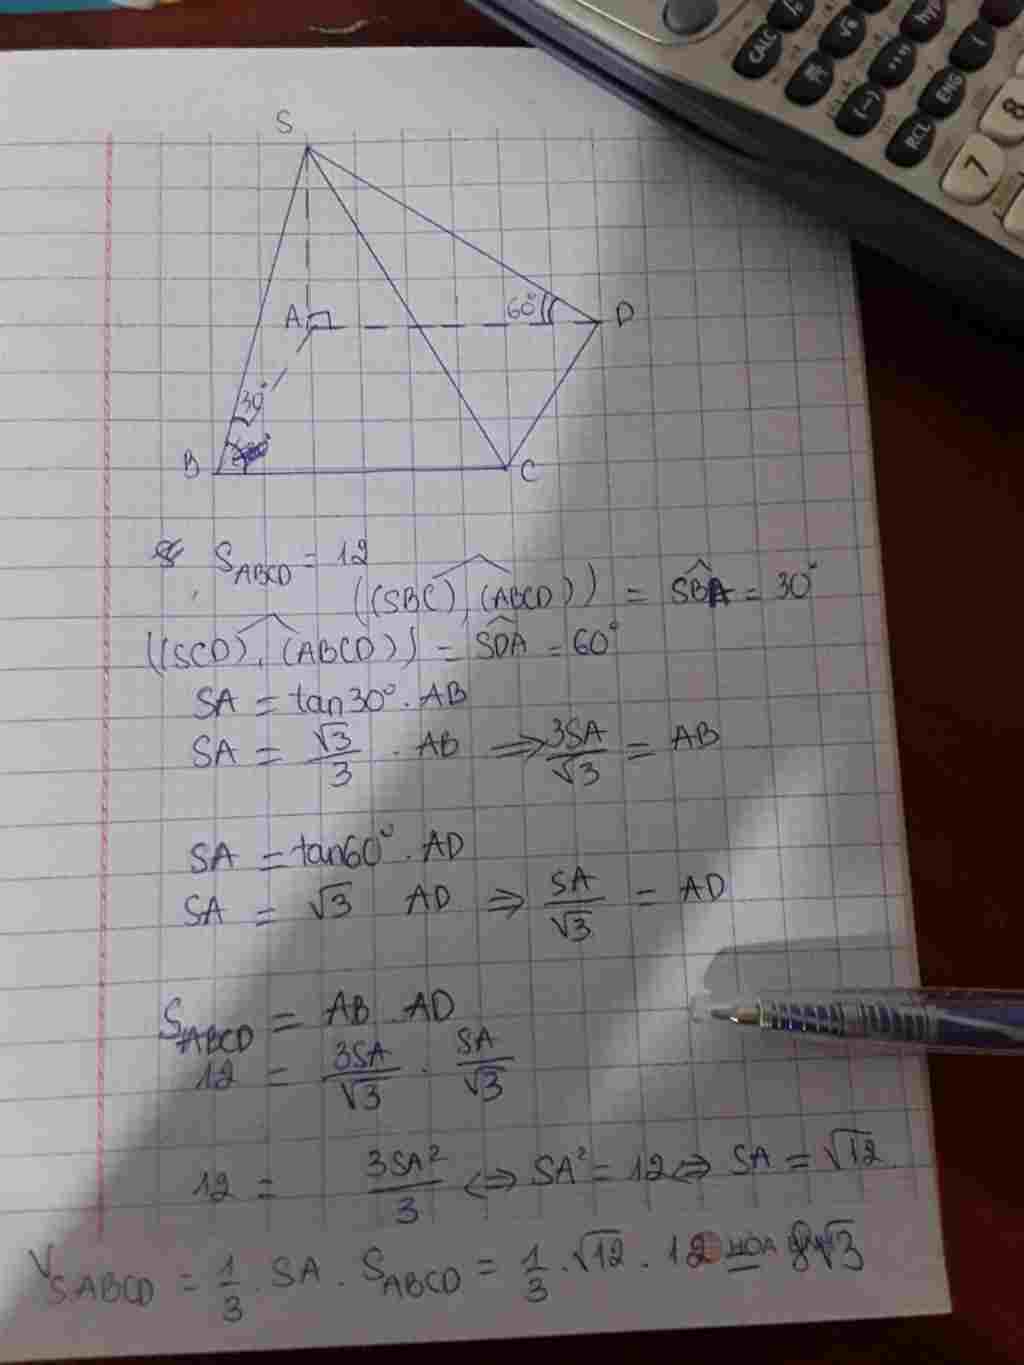 CALC
√
hyp
(
(-)
°'"
ENG
RCL
8
7
S
A
60°
D
30°
B
C
S_ABCD = 12
((SBC), (ABCD)) = SBA = 30°
((SCD), (ABCD)) = SDA = 60°
SA = tan30° . AB
SA = √3/3 . AB ⇒ 3SA/√3 = AB
SA = tan60° . AD
SA = √3 AD ⇒ SA/√3 = AD
S_ABCD = AB AD
12 = 3SA/√3 . SA/√3
12 = 3SA²/3 ⇔ SA² = 12 ⇔ SA = √12
V_SABCD = 1/3 . SA . S_ABCD = 1/3 . √12 . 12 = 8√3